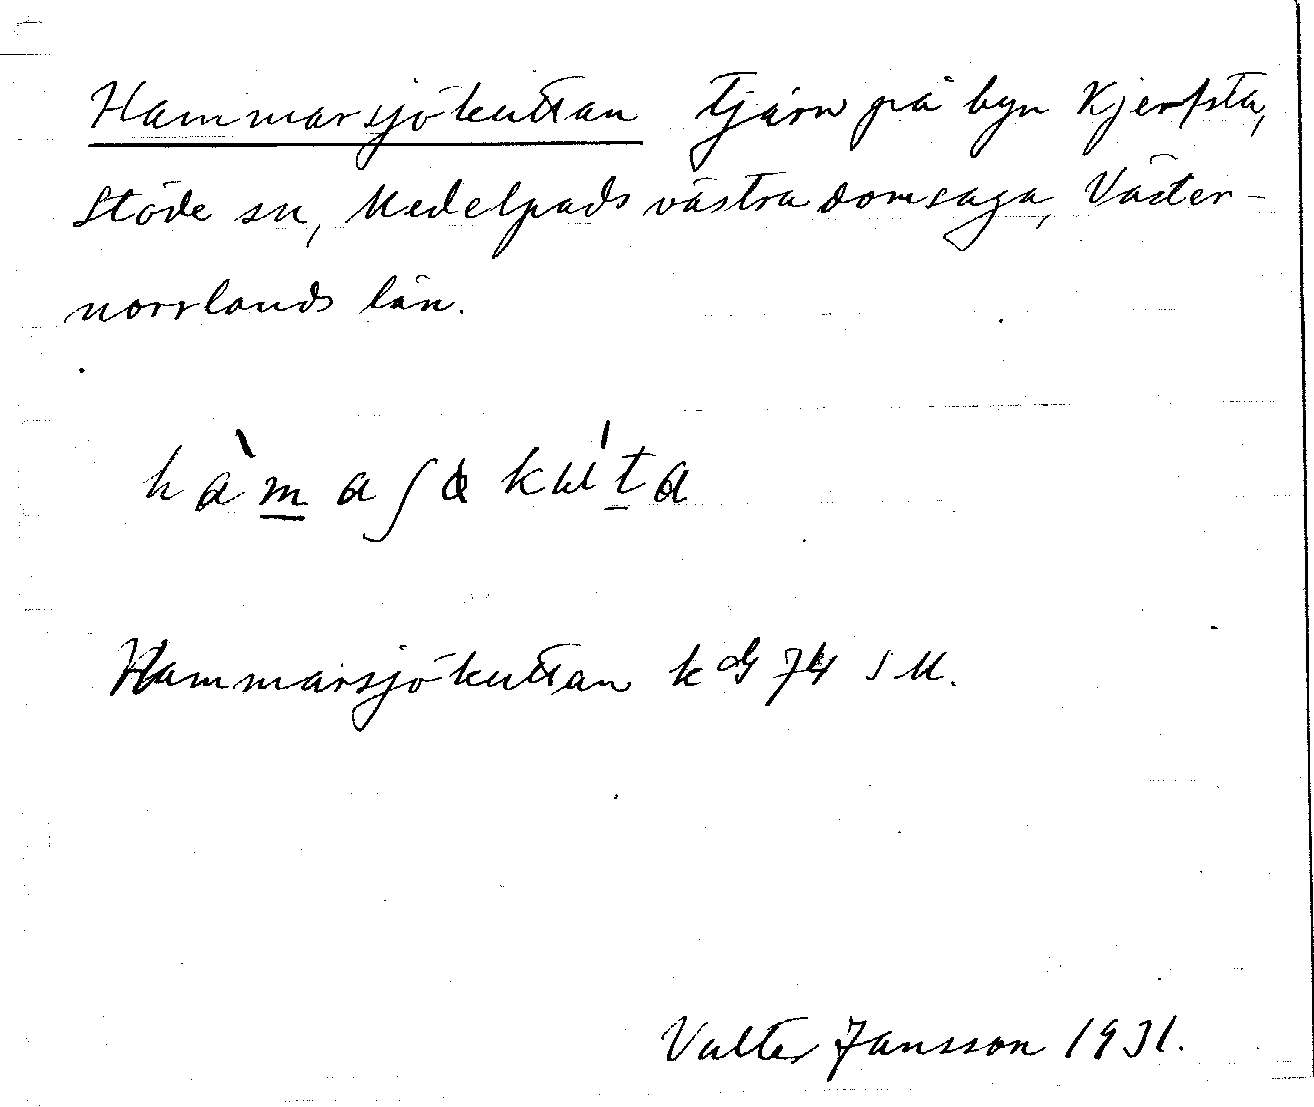 Hammarsjökuttan tjärn på byn Kjerfsta,
Stöde sn, Medelpads västra domsaga, Väster-
norrlands län.
hàmaʃøkúta
Hammarsjökuttan k 74 S M.
Valter Jansson 1931.